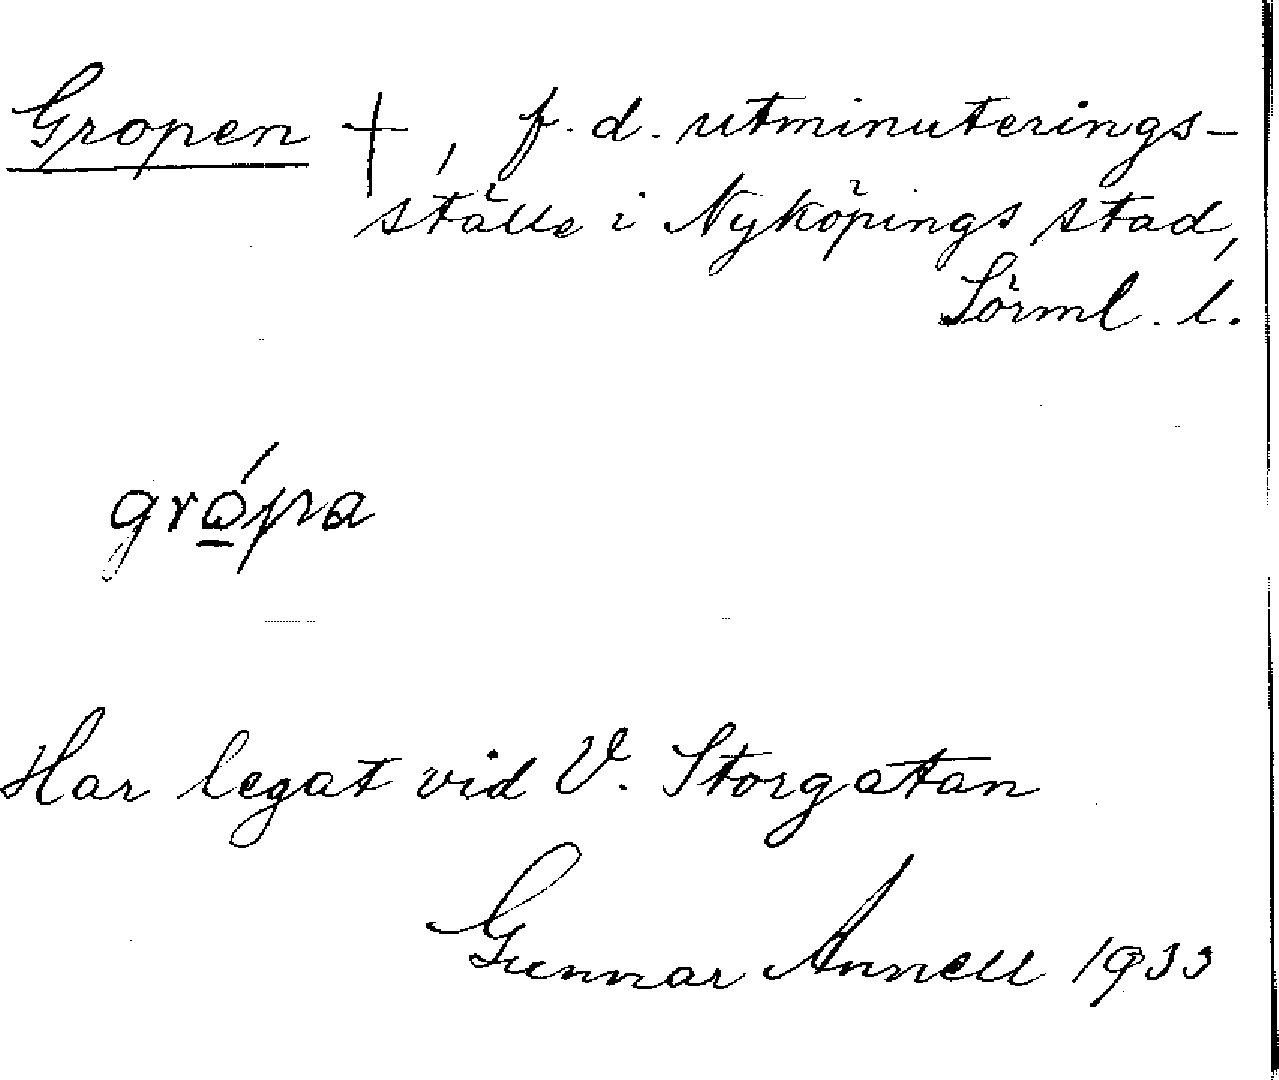 Gropen +, f. d. utminuterings-
ställe i Nyköpings stad,
Sörml. l.
grọ́pa
Har legat vid V. Storgatan
Gunnar Annell 1933